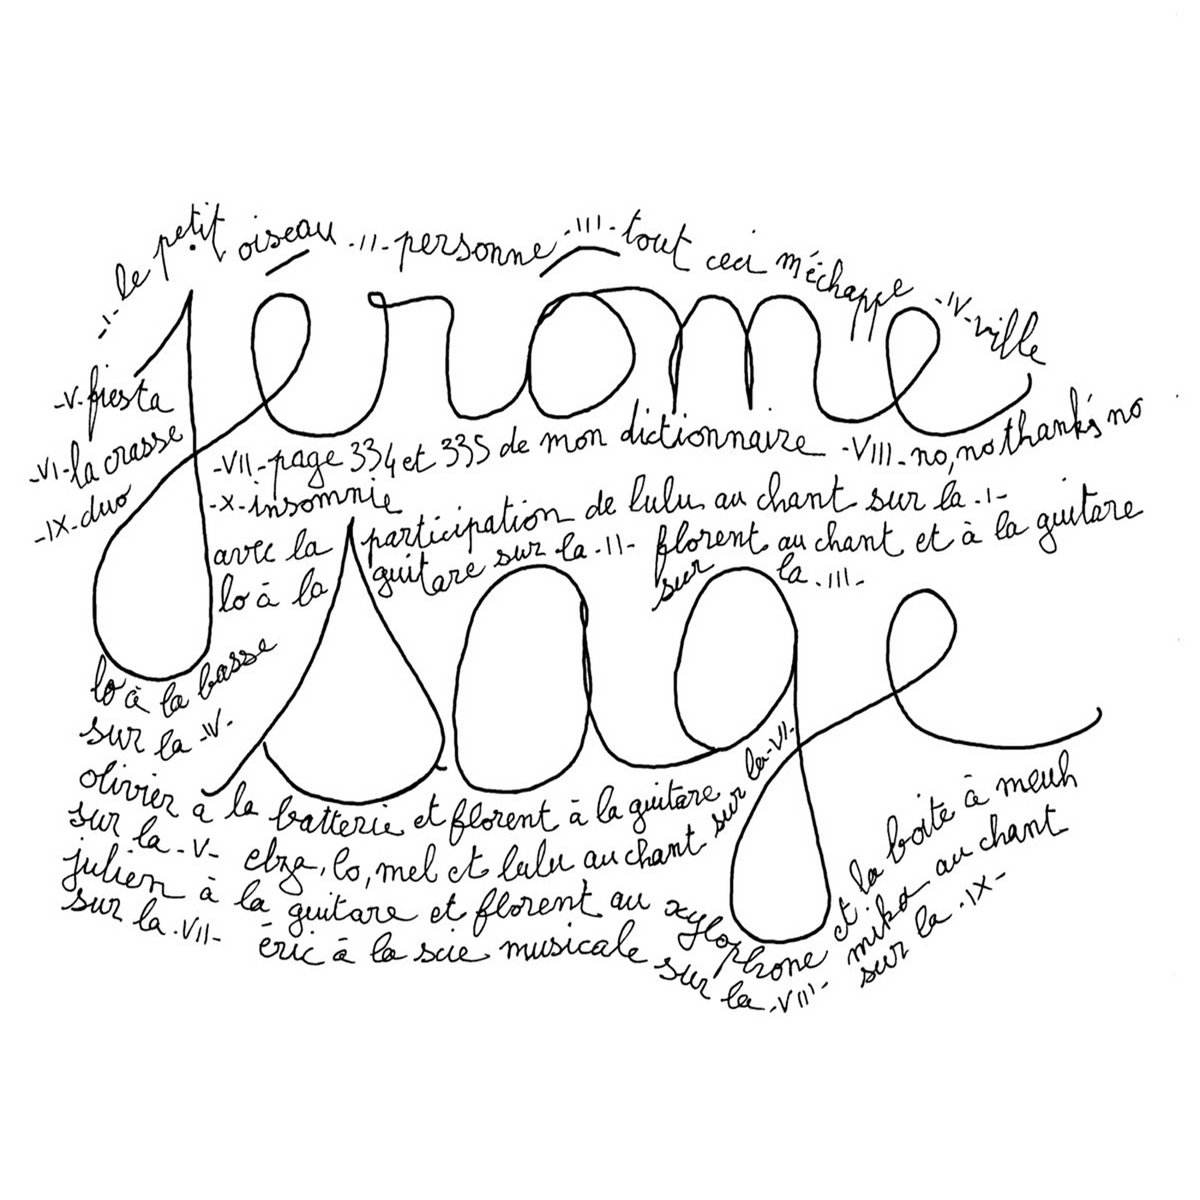 -I- le petit oiseau -II- personne -III- tout ceci m'échappe -IV- ville
jérôme
-V- fiesta
-VI- la crasse
-VII- page 334 et 335 de mon dictionnaire -VIII- no, no thank's no
-IX- duo
-X- insomnie
avec la participation de lulu au chant sur la -I-
lo à la guitare sur la -II- florent au chant et à la guitare
sur la -III-
sage
lo à la basse
sur la -IV-
olivier à la batterie et florent à la guitare
sur la -V- elza, lo, mel et lulu au chant sur la -VI-
julien à la guitare et florent au xylophone et la boite à meuh
sur la -VII- éric à la scie musicale sur la -VIII- miko au chant
sur la -IX-